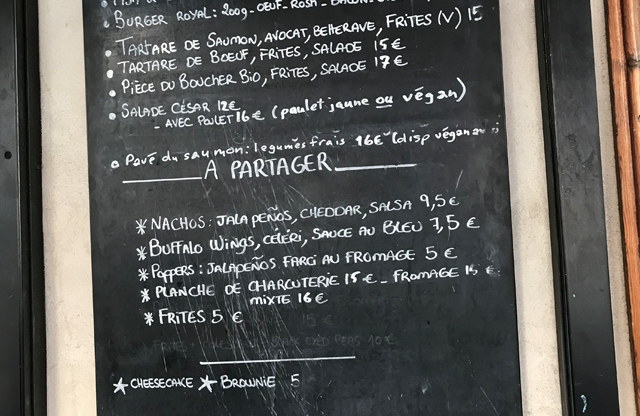 BURGER ROYAL: 200g - OEUF - ROSTI -
• TARTARE DE SAUMON, AVOCAT, BETTERAVE, FRITES (V) 15
• TARTARE DE BOEUF, FRITES, SALADE 15€
• PIÈCE DU BOUCHER BIO, FRITES, SALADE 17€
• SALADE CÉSAR 12€
- AVEC POULET 16€ (poulet jaune ou végan)
• Pavé du saumon: legumes frais 16€ (disp végan aussi
A PARTAGER
* NACHOS: JALAPEÑOS, CHEDDAR, SALSA 9,5€
* BUFFALO WINGS, CÉLÉRI, SAUCE AU BLEU 7,5€
* POPPERS: JALAPEÑOS FARCI AU FROMAGE 5€
* PLANCHE DE CHARCUTERIE 15€ - FROMAGE 15€
MIXTE 16€
* FRITES 5€
★ CHEESECAKE ★ BROWNIE 5